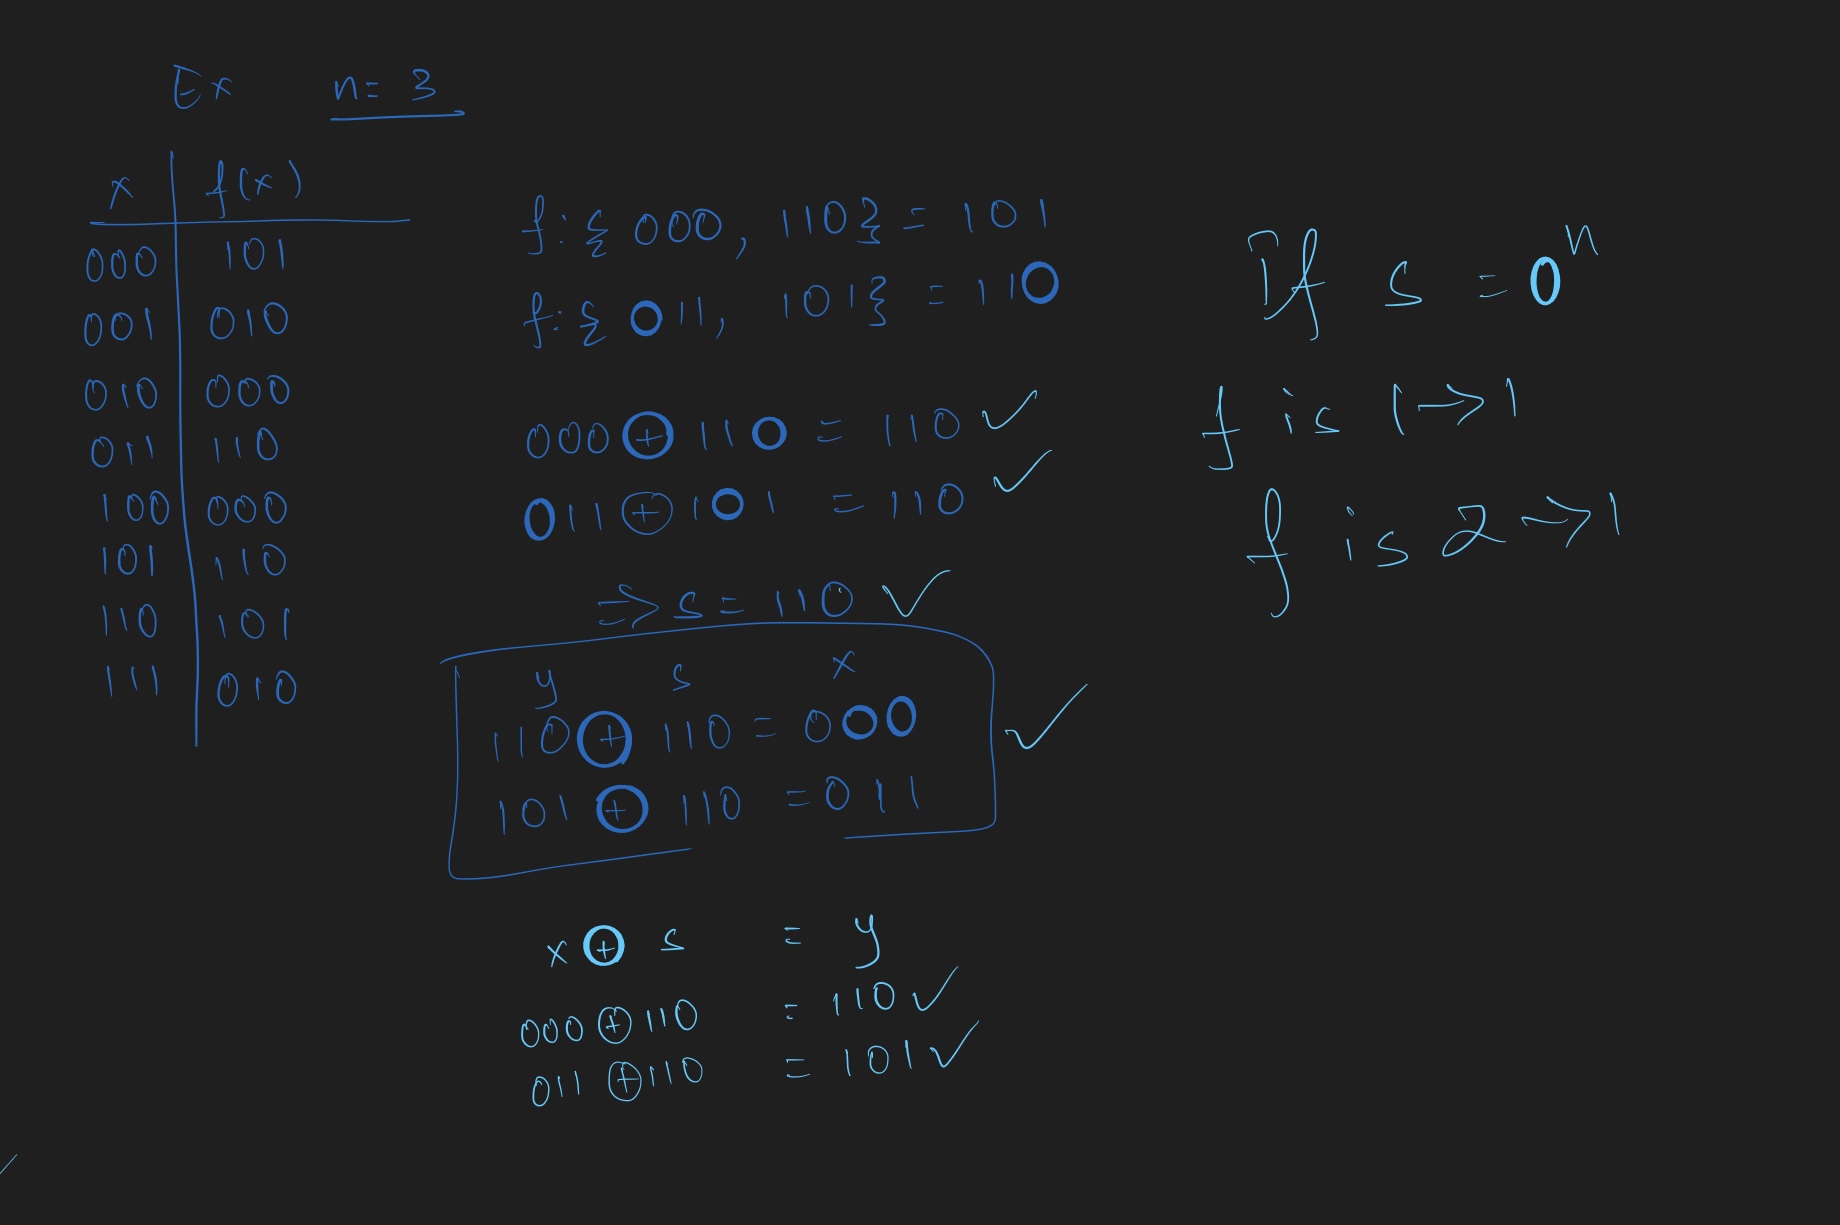 Ex n = 3
x f(x)
000 101
001 010
010 000
011 110
100 000
101 110
110 101
111 010
f: { 000, 110} = 101
f: { 011, 101} = 110
000 ⊕ 110 = 110 ✓
011 ⊕ 101 = 110 ✓
=> s = 110 ✓
y s x
110 ⊕ 110 = 000
101 ⊕ 110 = 011
✓
x ⊕ s = y
000 ⊕ 110 = 110 ✓
011 ⊕ 110 = 101 ✓
If s = 0ⁿ
f is 1 → 1
f is 2 → 1